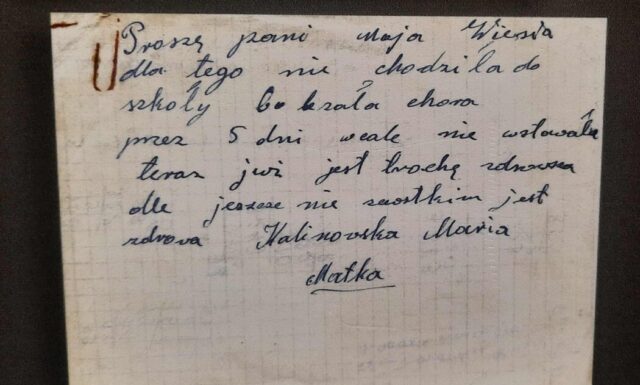 Proszę pani Moja Wiesia
dla tego nie chodziła do
szkoły bo była chora
przez 5 dni wcale nie wstawała
teraz juź jest trochę zdrowsza
ale jeszcze nie zwostkim jest
zdrova Kalinovska Maria
Matka